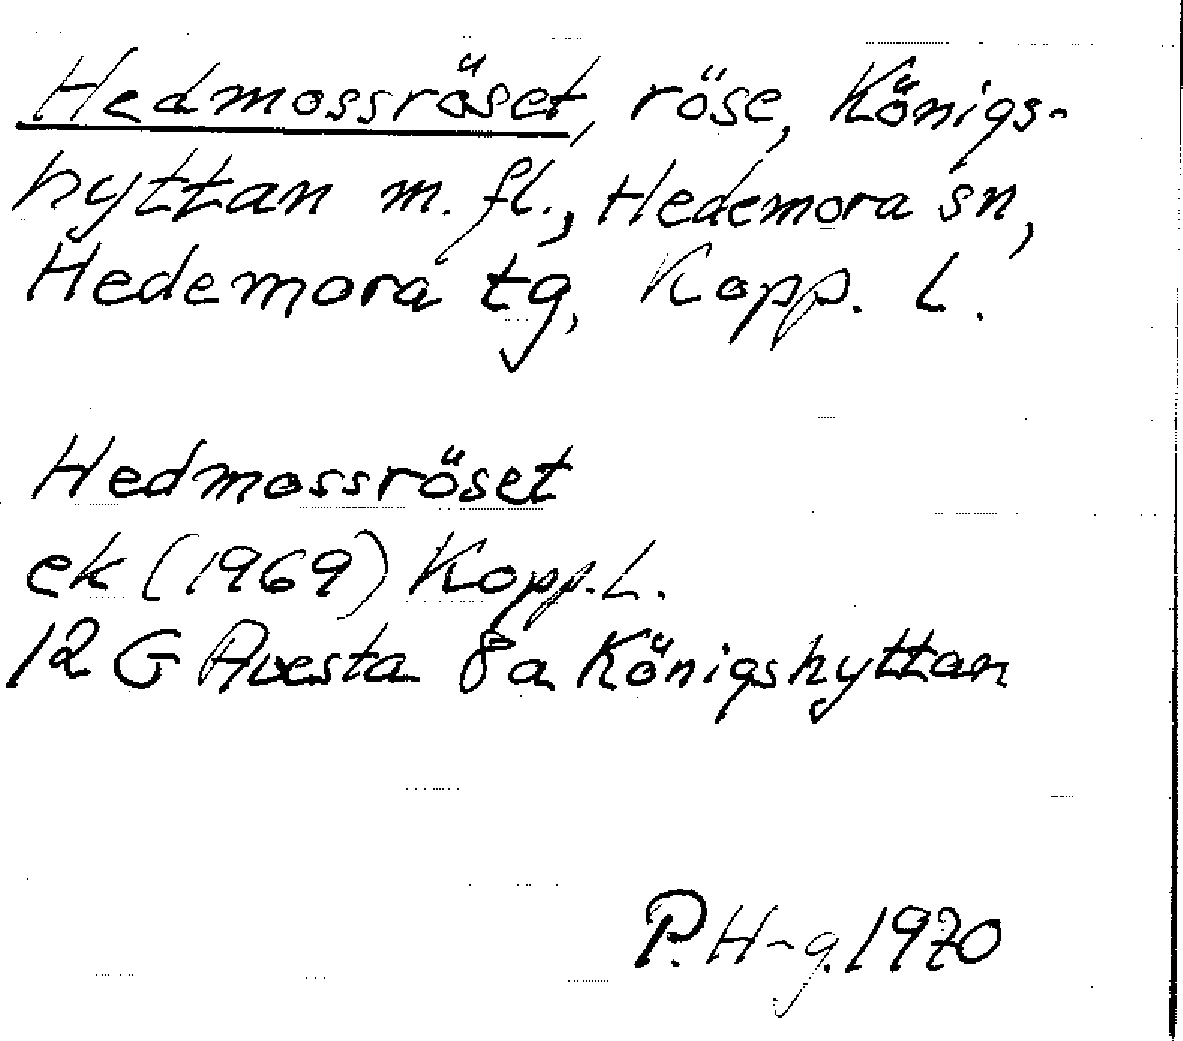 Hedmossröset, röse, Königs-
hyttan m. fl., Hedemora sn,
Hedemora tg, Kopp. L.
Hedmossröset
ek (1969) Kopp. L.
12 G Avesta 8a Königshyttan
P. H-g. 1970